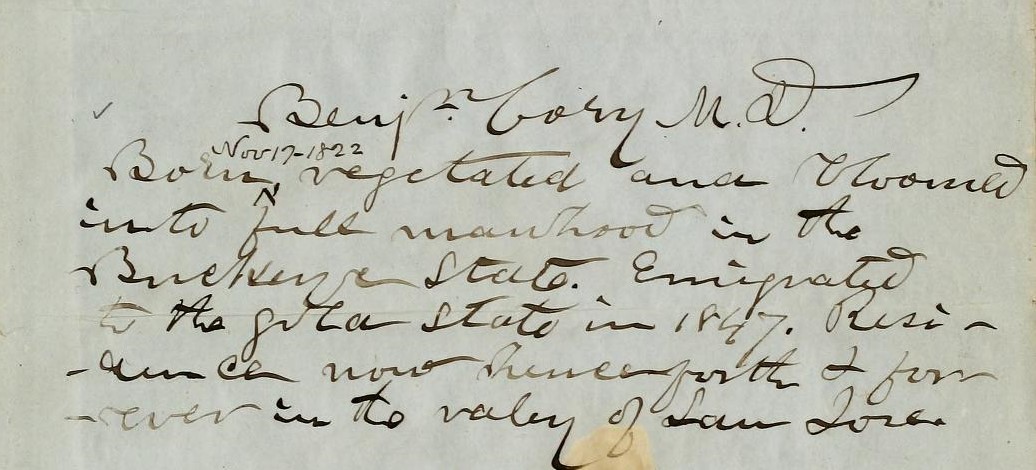 Benjn. Cory M. D.
Nov 17-1822
Born ^ vegetated and bloomed
into full manhood in the
Buckeye State. Emigrated
to the gold State in 1847. Resi-
-dence now henceforth & for-
-ever in the valey of San Jose.